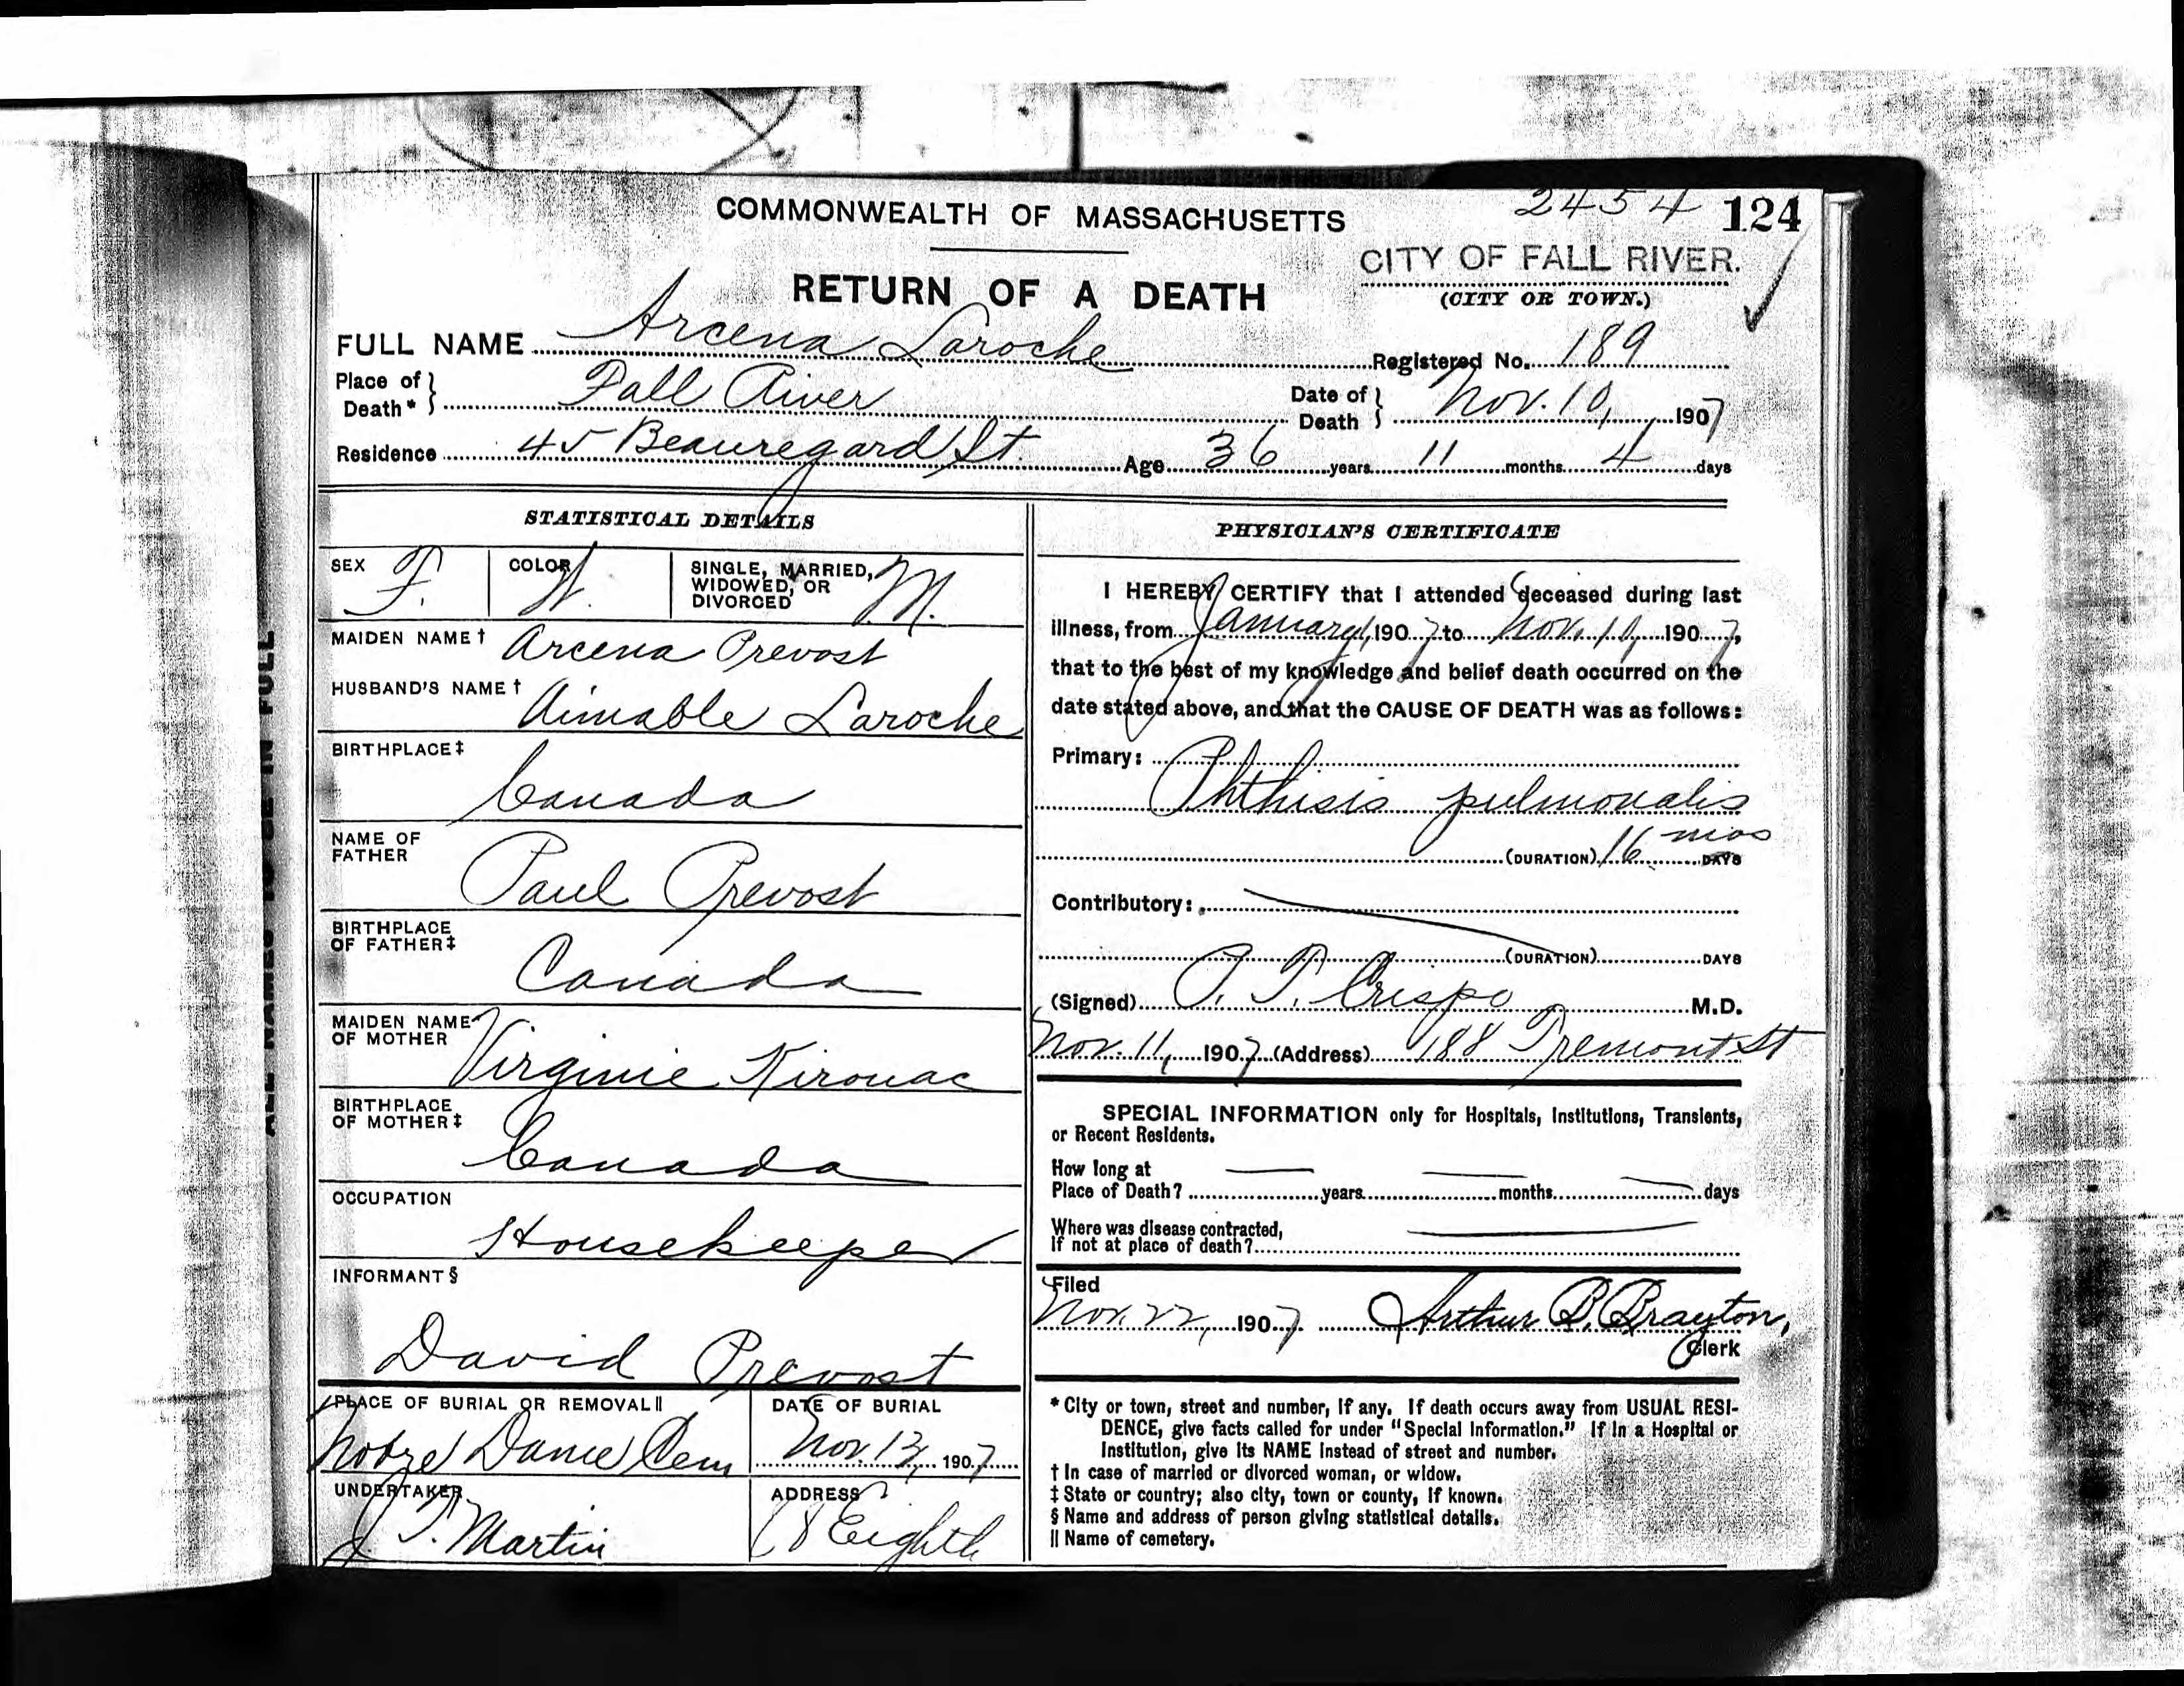 2454 124
COMMONWEALTH OF MASSACHUSETTS
CITY OF FALL RIVER.
(CITY OR TOWN.)
RETURN OF A DEATH
FULL NAME Arcena Laroche Registered No. 189
Place of Death* Fall River Date of Death Nov. 10, 1907
Residence 45 Beauregard St. Age 36 years 11 months 4 days
STATISTICAL DETAILS
SEX F. COLOR W. SINGLE, MARRIED, WIDOWED, OR DIVORCED M.
MAIDEN NAME† Arcena Prevost
HUSBAND'S NAME† Aimable Laroche
BIRTHPLACE‡
Canada
NAME OF FATHER
Paul Prevost
BIRTHPLACE OF FATHER‡
Canada
MAIDEN NAME OF MOTHER
Virginie Kirouac
BIRTHPLACE OF MOTHER‡
Canada
OCCUPATION
Housekeeper
INFORMANT§
David Prevost
PLACE OF BURIAL OR REMOVAL‖ DATE OF BURIAL
Notre Dame Cem Nov. 13, 1907
UNDERTAKER ADDRESS
J. T. Martin 78 Eighth
PHYSICIAN'S CERTIFICATE
I HEREBY CERTIFY that I attended deceased during last
illness, from January 1, 1907 to Nov. 10, 1907,
that to the best of my knowledge and belief death occurred on the
date stated above, and that the CAUSE OF DEATH was as follows:
Primary:
Phthisis pulmonalis
(DURATION) 16 mos DAYS
Contributory:
(DURATION) DAYS
(Signed) P. P. Crispo M.D.
Nov. 11, 1907 (Address) 188 Tremont St
SPECIAL INFORMATION only for Hospitals, Institutions, Transients,
or Recent Residents.
How long at
Place of Death? years months days
Where was disease contracted,
If not at place of death?
Filed
Nov. 22, 1907 Arthur B. Brayton,
Clerk
* City or town, street and number, if any. If death occurs away from USUAL RESI-
DENCE, give facts called for under "Special Information." If in a Hospital or
Institution, give its NAME instead of street and number.
† In case of married or divorced woman, or widow.
‡ State or country; also city, town or county, if known.
§ Name and address of person giving statistical details.
‖ Name of cemetery.